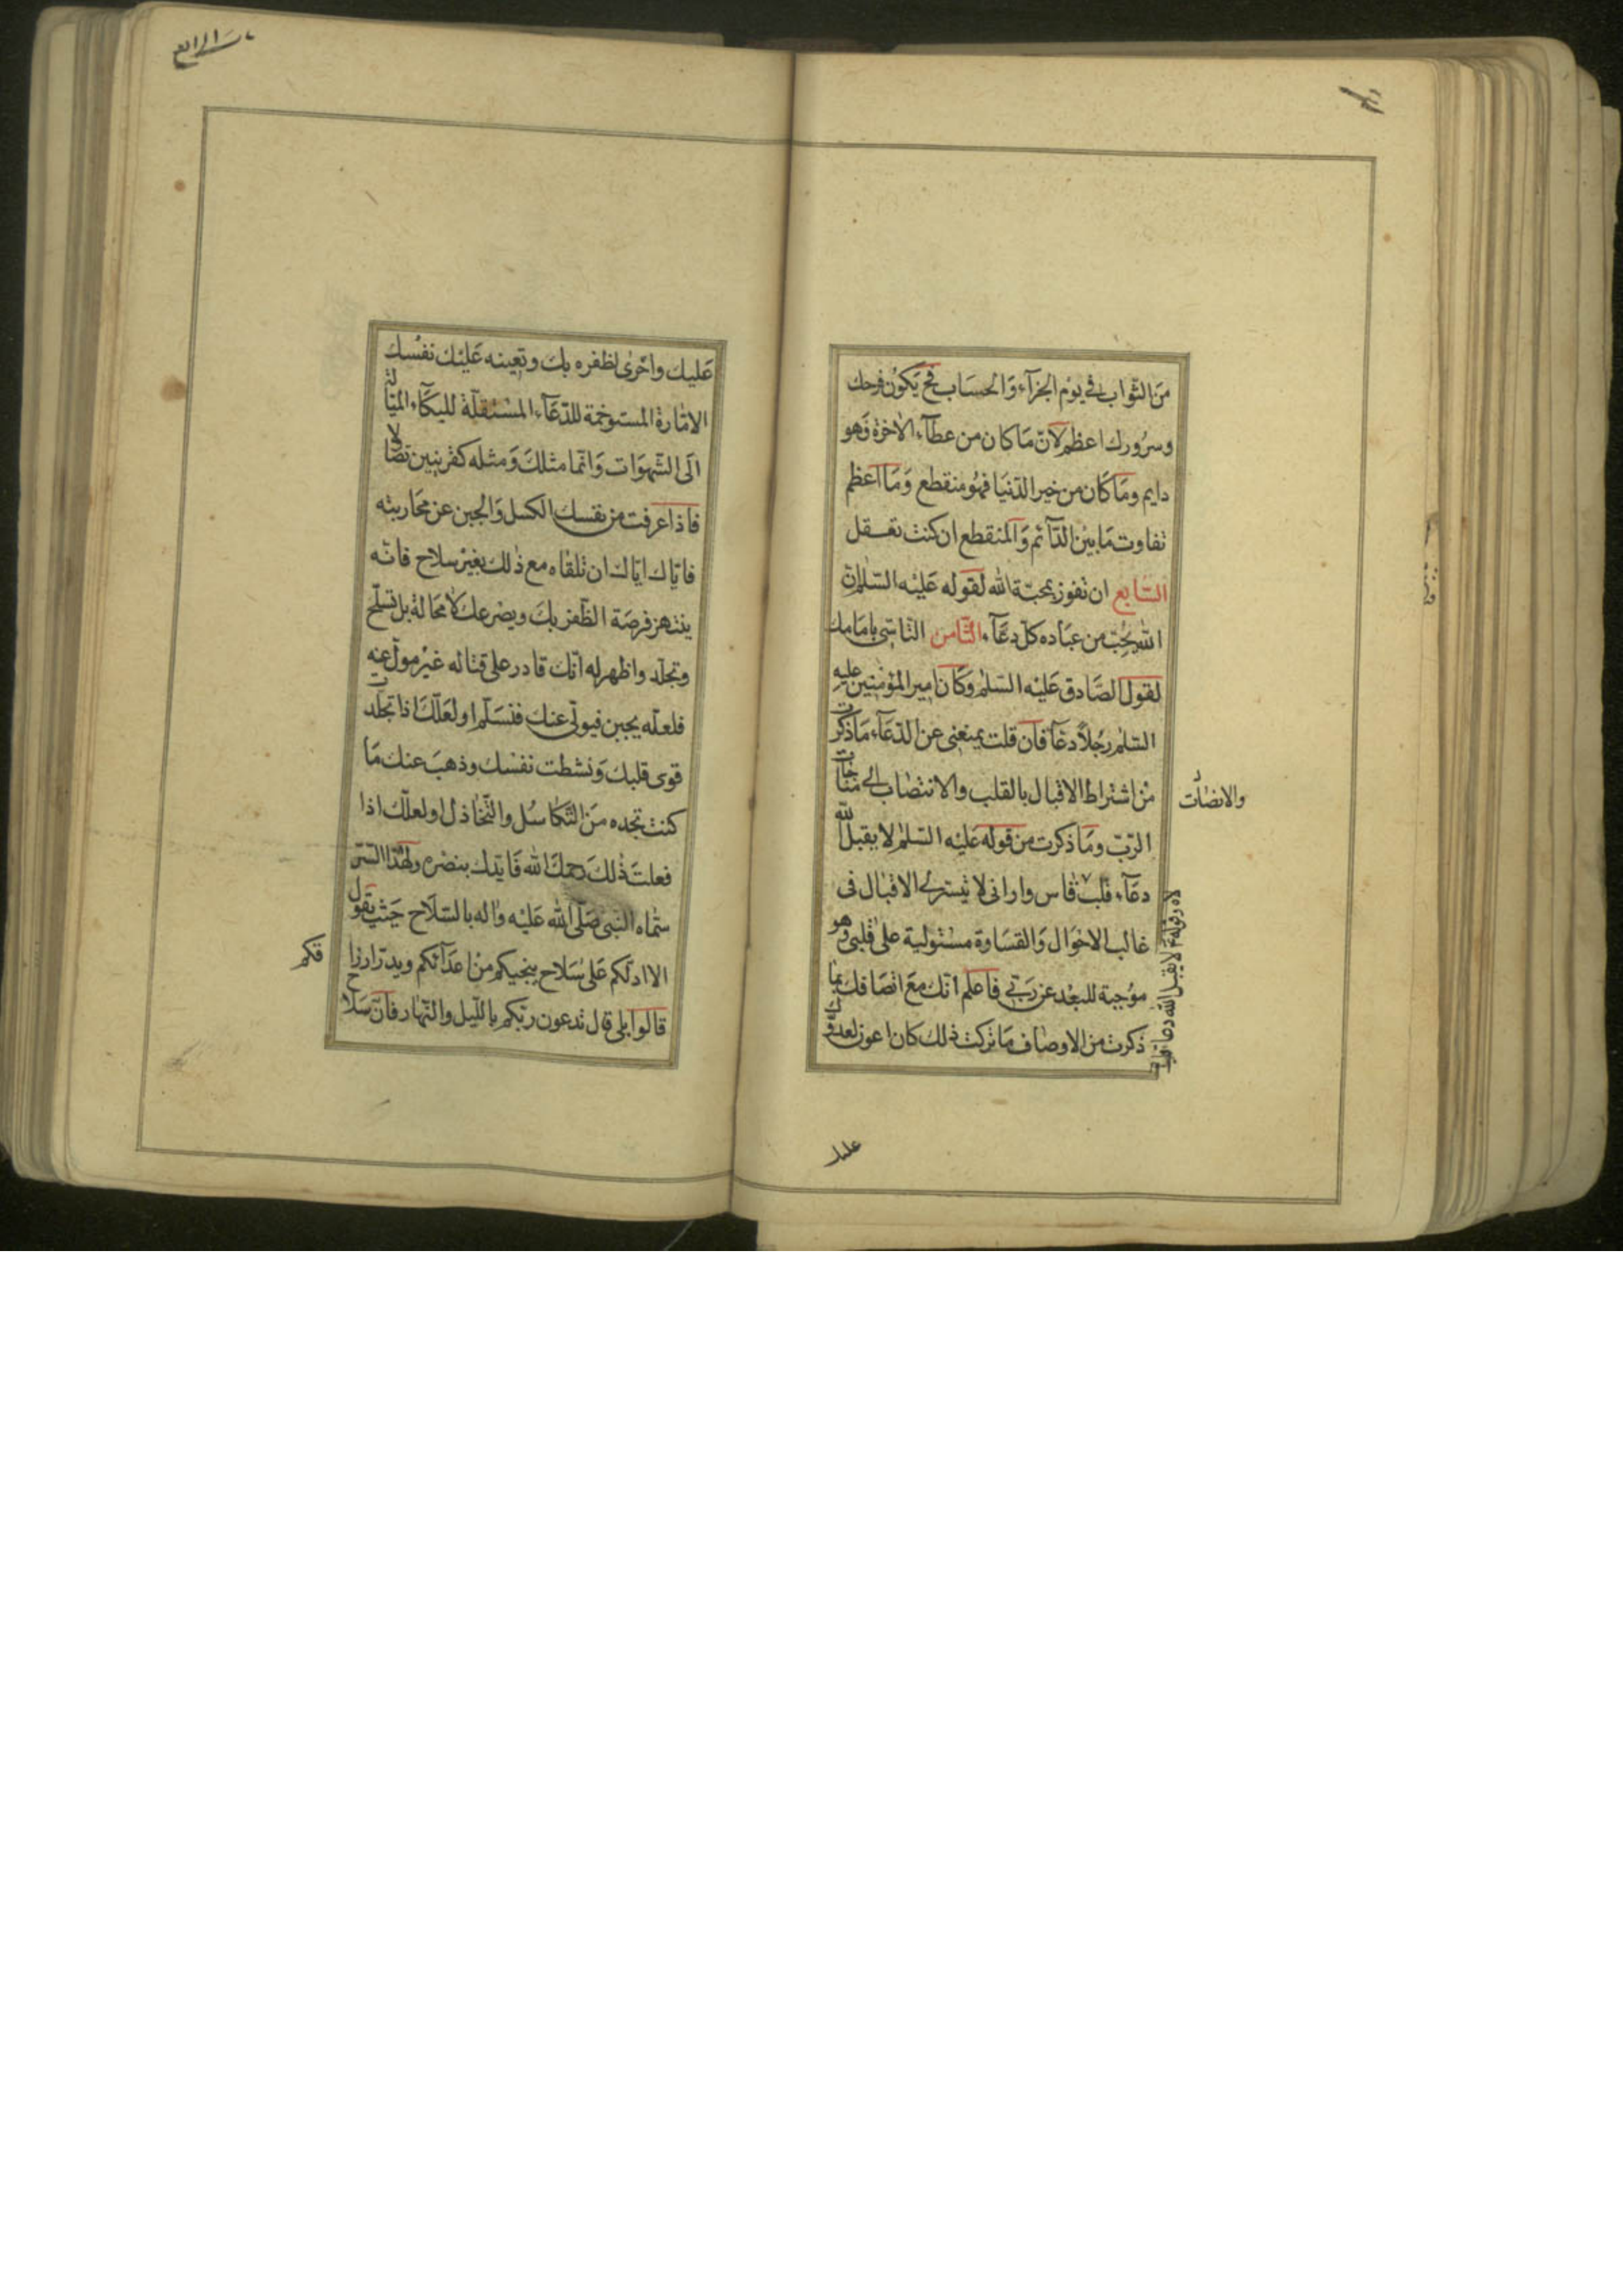 من الثواب في يوم الجزآء والحساب فح يكون فرحك
وسرورك اعظم لانّ ما كان من عطآء الاخرة فهو
دايم وما كان من خير الدّنيا فهو منقطع وما اعظم
تفاوت ما بين الدّآئم والمنقطع ان كنت تعقل
السّابع ان تفوز بمحبّة الله لقوله عليه السّلم انّ
الله يحبّ من عباده كلّ دعّآء الثّامن التاسّى بامامك
لقول الصّادق عليه السّلم وكان امير المؤمنين عليه
السّلم رجلاً دعّآء فان قلت يمنعنى عن الدّعآء ما ذكرت
من اشتراط الاقبال بالقلب والانتصاب الى مناجات
الرّبّ وما ذكرت من قوله عليه السّلم لا يقبل الله
دعآء قلب قاس وارانى لا يتيسّر لى الاقبال فى
غالب الاحوال والقساوة مستولية على قلبى وهو
موجبة للبعد عن ربّى فاعلم انّك مع اتصافك بما
ذكرت من الاوصاف ما تركت ذلك كان اعون لعدوّك
والانصات
عليك
بارسَ الرابع
عليك واخرى لظفره بك وتعينه عليك نفسك
الامّارة المستوخمة للدّعآء المستثقلة للبكآء الميّالة
الى الشّهوات وانّما مثلك ومثله كقرينين تصاولا
فاذا عرفت من نفسك الكسل والجبن عن محاربته
فايّاك ايّاك ان تلقاه مع ذلك بغير سلاح فانّه
ينتهز فرصة الظّفر بك ويصرعك لا محالة بل تسلّح
وتجلّد واظهر له انّك قادر على قتاله غير مولّ عنه
فلعلّه يجبن فيولّى عنك فتسلّم او لعلّك اذا تجلّدت
قوى قلبك ونشطت نفسك وذهب عنك ما
كنت تجده من التّكاسل والتّخاذل او لعلّك اذا
فعلت ذلك رحمك الله فايّدك بنصره ولهذا السّرّ
سمّاه النّبى صلّى الله عليه واله بالسّلاح حيث يقول
الا ادلّكم على سلاح ينجيكم من اعدآئكم ويدرّ ارزاقكم
قالوا بلى قال تدعون ربّكم بالليل والنّهار فانّ سلاح